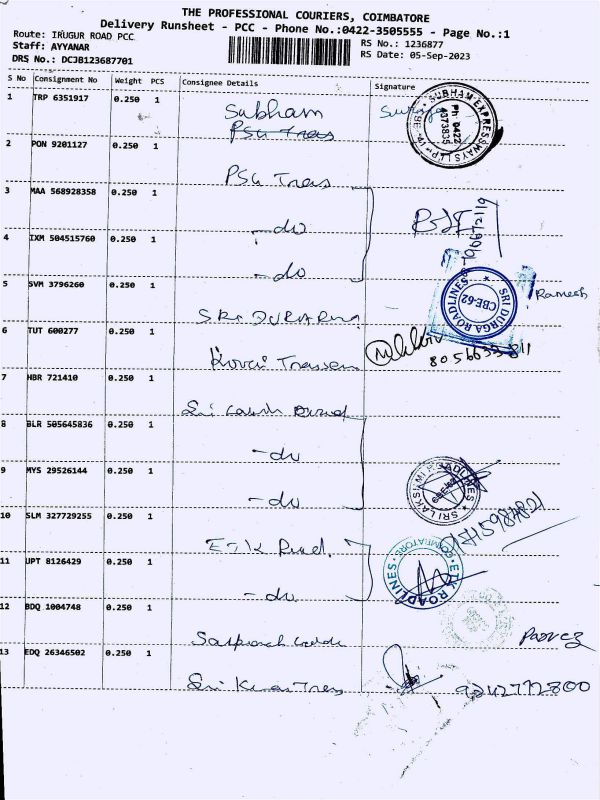 THE PROFESSIONAL COURIERS, COIMBATORE
Delivery Runsheet - PCC - Phone No.:0422-3505555 - Page No.:1
Route: IRUGUR ROAD PCC
RS No.: 1236877
Staff: AYYANAR
RS Date: 05-Sep-2023
DRS No.: DCJB123687701
S No Consignment No Weight PCS Consignee Details Signature
1 TRP 6351917 0.250 1 Subham
PSG Trans
SUBHAM EXPRESSWAYS LLP
Ph 0422
4373835
2 PON 9201127 0.250 1 PSG Trans
3 MAA 568928358 0.250 1 -do
4 IXM 504515760 0.250 1 -do
5 SVM 3796260 0.250 1 SRI DURGA
SRI DURGA ROADLINES
CBE-62
Ramesh
6 TUT 600277 0.250 1 Kovai Transem
8056633811
7 HBR 721410 0.250 1
8 BLR 505645836 0.250 1 -do
9 MYS 29526144 0.250 1 -do
SRI LAKSHMI ROADLINES
10 SLM 327729255 0.250 1 ETK Road.
11 UPT 8126429 0.250 1 -do
ETK ROADLINES
COIMBATORE
12 BDQ 1004748 0.250 1
Parvez
13 EDQ 26346502 0.250 1 Sri Kumaran Trans
9242772800